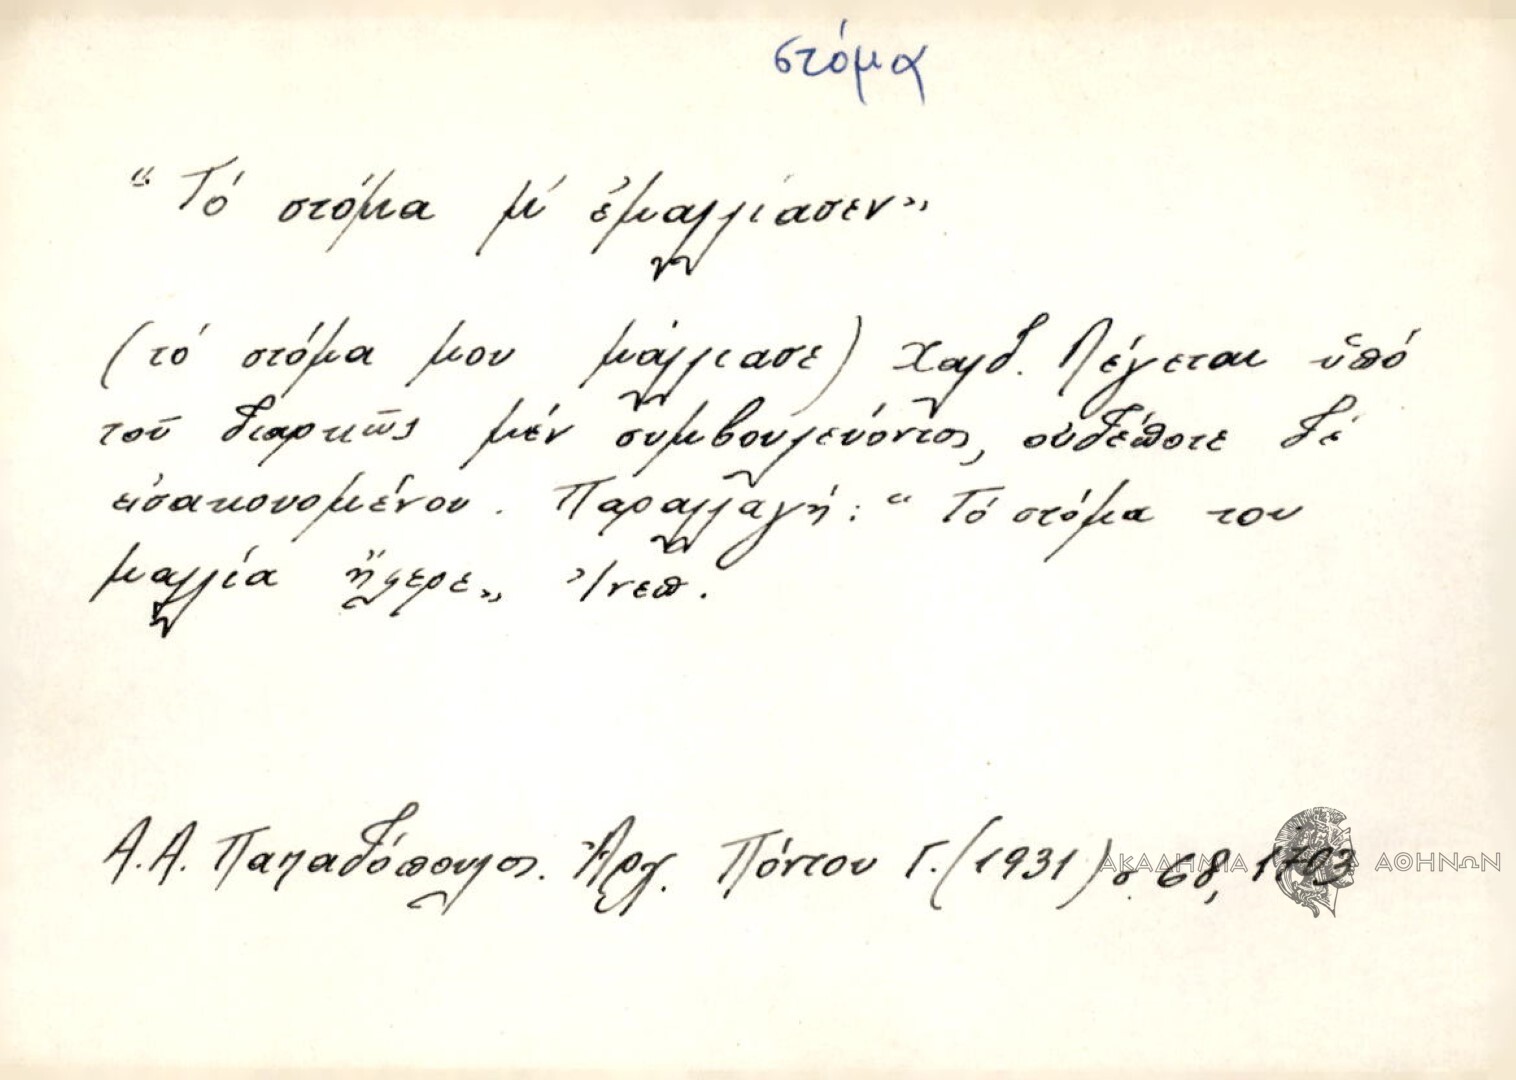 στόμα
“Τό στόμα μ' ἐμαλλίασεν»
(τό στόμα μου μάλλιασε) Χαλδ. Λέγεται ὑπό
τοῦ διαρκῶς μέν συμβουλεύοντος, οὐδέποτε δέ
εἰσακουομένου. Παραλλαγή: “Τό στόμα του
μαλλία ἤφερε» Ἰνεπ.
Α.Α. Παπαδόπουλος. Ἀρχ. Πόντου Γ. (1931) σ. 68, 1703
ΑΚΑΔΗΜΙΑ ΑΘΗΝΩΝ